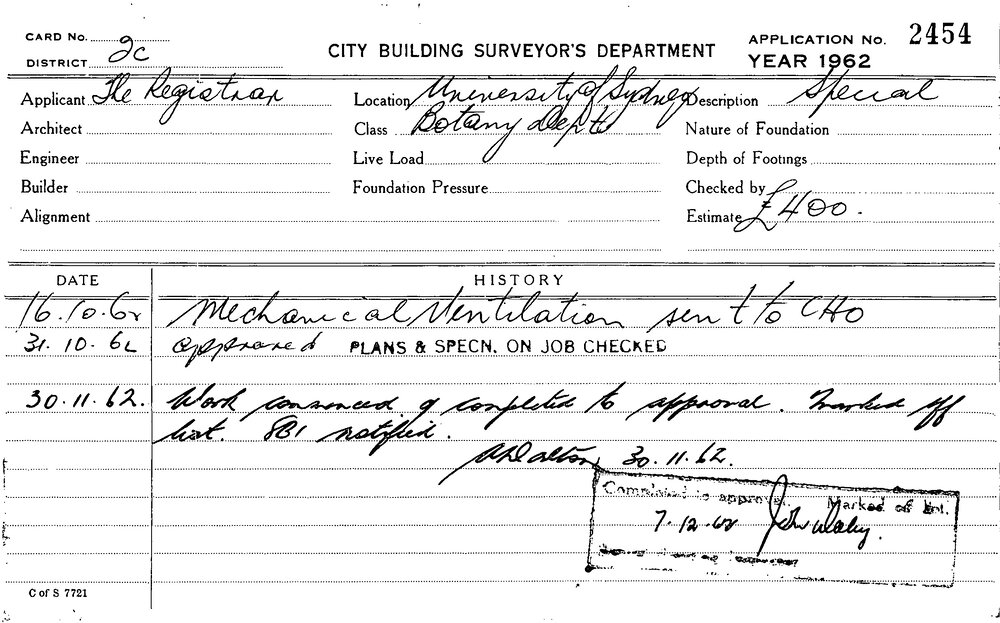 CARD No.
DISTRICT 2c
CITY BUILDING SURVEYOR'S DEPARTMENT
APPLICATION No. 2454
YEAR 1962
Applicant The Registrar Location University of Sydney Description Special
Architect Class Botany Dept Nature of Foundation
Engineer Live Load Depth of Footings
Builder Foundation Pressure Checked by
Alignment Estimate £400.
DATE HISTORY
16.10.62 Mechanical Ventilation sent to CHO
31.10.62 approved PLANS & SPECN. ON JOB CHECKED
30.11.62. Work commenced & completed to approval. Marked off
list. SBI notified.
30.11.62.
Completed to approval. Marked off list.
7.12.62
C of S 7721